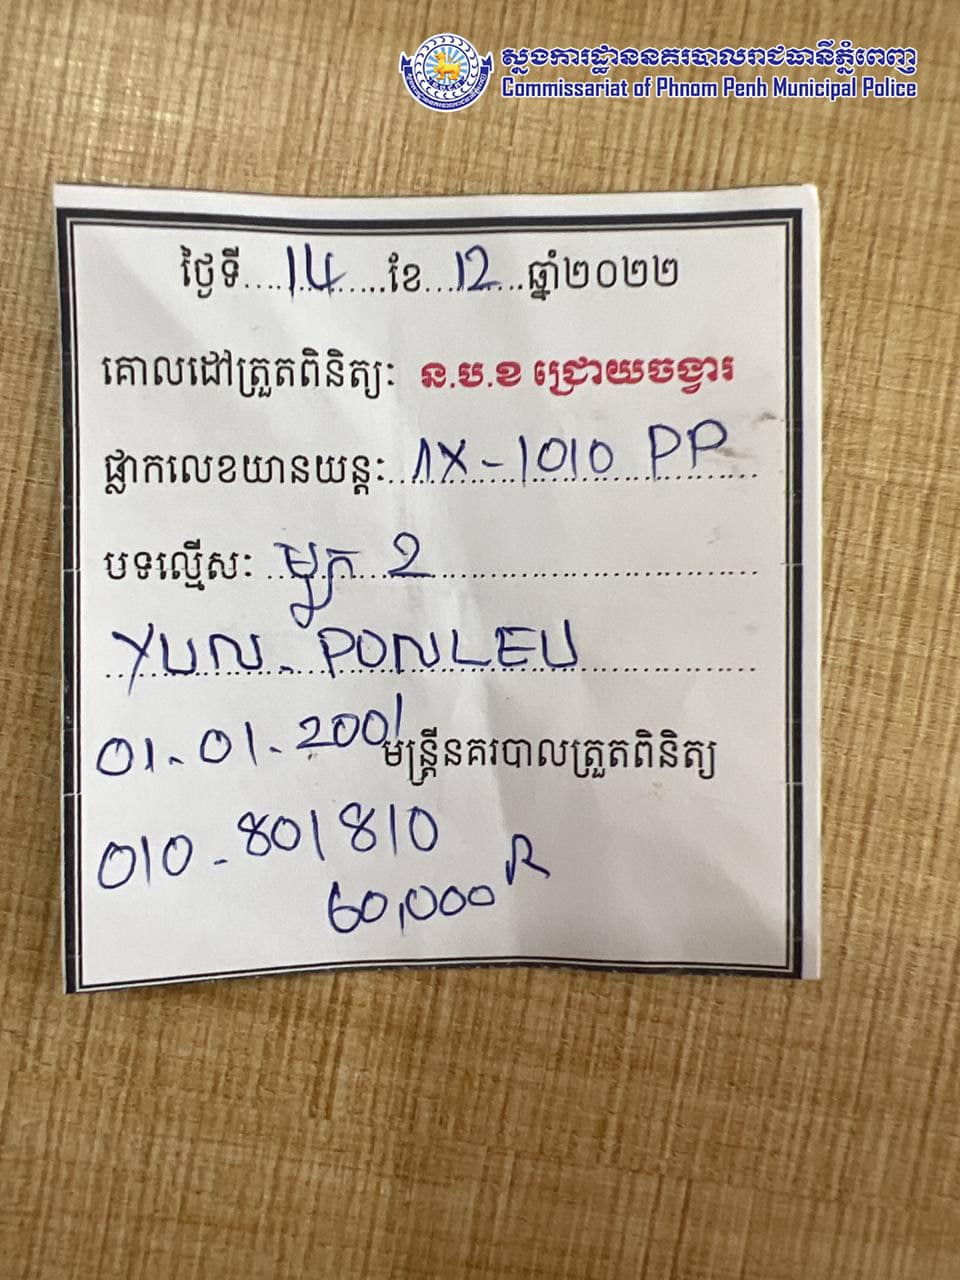 ស្នងការដ្ឋាននគរបាលរាជធានីភ្នំពេញ
Commissariat of Phnom Penh Municipal Police
ថ្ងៃទី....14.......ខែ...12...ឆ្នាំ២០២២
គោលដៅត្រួតពិនិត្យៈ ន.ប.ខ ជ្រោយចង្វារ
ផ្លាកលេខយានយន្តៈ 1X-1010 PP
បទល្មើសៈ មួក 2
YUN. PONLEU
01.01.2001 មន្ត្រីនគរបាលត្រួតពិនិត្យ
010-801810
60,000 R